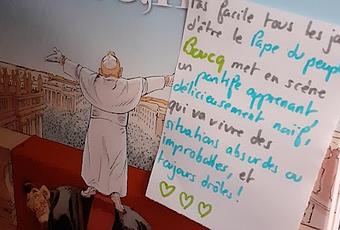 Pas facile tous les
d'être le Pape du peup
Boucq met en scène
un pontife apprenant,
délicieusement naïf,
qui va vivre des
situations absurdes ou
improbables, et
toujours drôles !